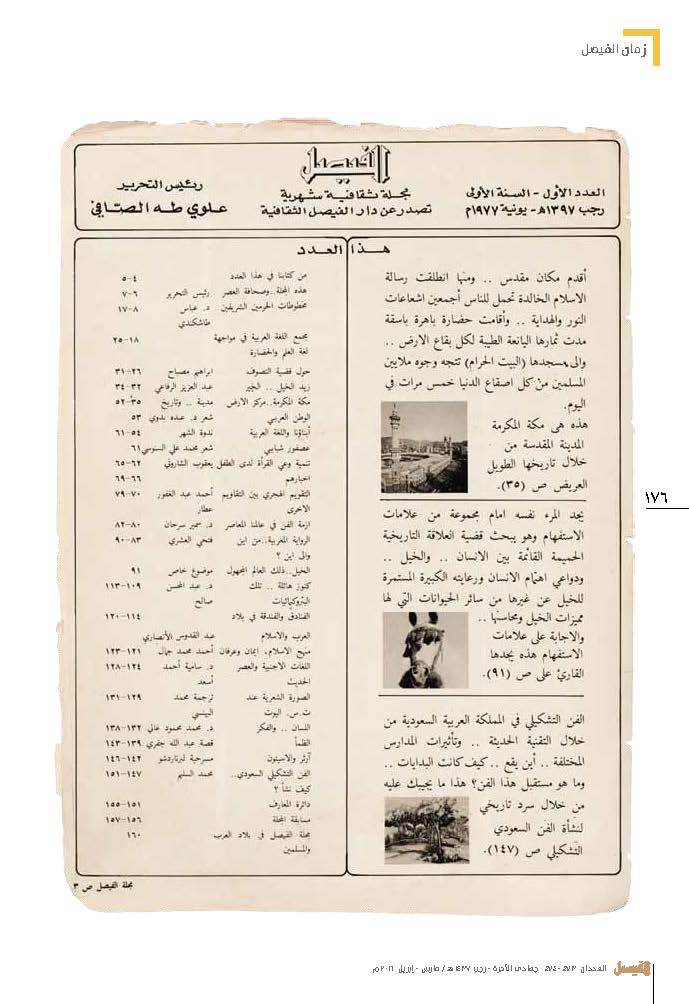 زمان الفيصل
العدد الأول - السنة الأولى
رجب ١٣٩٧هـ - يونية ١٩٧٧م
الفيصل
مجلة ثقافية شهرية
تصدر عن دار الفيصل الثقافية
رئيس التحرير
علوي طه الصافي
هذا العدد
أقدم مكان مقدس .. ومنها انطلقت رسالة
الاسلام الخالدة تحمل للناس أجمعين اشعاعات
النور والهداية .. وأقامت حضارة باهرة باسقة
مدت ثمارها اليانعة الطيبة لكل بقاع الارض ..
والى مسجدها (البيت الحرام) تتجه وجوه ملايين
المسلمين من كل اصقاع الدنيا خمس مرات في
اليوم.
هذه هى مكة المكرمة
المدينة المقدسة من
خلال تاريخها الطويل
العريض ص (٣٥).
يجد المرء نفسه امام مجموعة من علامات
الاستفهام وهو يبحث قضية العلاقة التاريخية
الحميمة القائمة بين الانسان .. والخيل ..
ودواعي اهتمام الانسان ورعايته الكبيرة المستمرة
للخيل عن غيرها من سائر الحيوانات التي لها
مميزات الخيل ومحاسنها ..
والاجابة على علامات
الاستفهام هذه يجدها
القارئ على ص (٩١).
الفن التشكيلي في المملكة العربية السعودية من
خلال التقنية الحديثة .. وتأثيرات المدارس
المختلفة .. أين يقع .. كيف كانت البدايات ..
وما هو مستقبل هذا الفن؟ هذا ما يجيبك عليه
من خلال سرد تاريخي
لنشأة الفن السعودي
التشكيلي ص (١٤٧).
من كتابنا في هذا العدد ٤-٥
هذه المجلة..وصحافة العصر رئيس التحرير ٦-٧
مخطوطات الحرمين الشريفين د. عباس ٨-١٧
طاشكندي
مجمع اللغة العربية في مواجهة ١٨-٢٥
لغة العلم والحضارة
حول قضية التصوف ابراهيم مصباح ٢٦-٣١
زيد الخيل .. الخير عبد العزيز الرفاعي ٣٢-٣٤
مكة المكرمة..مركز الارض مدينة .. وتاريخ ٣٥-٥٢
الوطن العربي شعر د. عبده بدوي ٥٣
أبناؤنا واللغة العربية ندوة الشهر ٥٤-٦١
عصفور شبابي شعر محمد علي السنوسي ٦١
تنمية وعي القرأة لدى الطفل يعقوب الشاروني ٦٢-٦٥
اخبارهم ٦٦-٦٩
التقويم الهجري بين التقاويم أحمد عبد الغفور ٧٠-٧٩
الاخرى عطار
ازمة الفن في عالمنا المعاصر د. سمير سرحان ٨٠-٨٢
الرواية المغربية..من اين فتحي العشري ٨٣-٩٠
والى اين ؟
الخيل..ذلك العالم المجهول موضوع خاص ٩١
كنوز هائلة .. تلك د. عبد المحسن ١٠٩-١١٣
البتروكيمائيات صالح
الفنادق والفندقة في بلاد ١١٤-١٢٠
العرب والاسلام عبد القدوس الأنصاري
منهج الاسلام، ايمان وعرفان أحمد محمد جمال ١٢١-١٢٣
اللغات الاجنبية والعصر د. سامية أحمد ١٢٤-١٢٨
الحديث أسعد
الصورة الشعرية عند ترجمة محمد ١٢٩-١٣١
ت.س. اليوت
اللسان .. والفكر د. محمد محمود غالي ١٣٢-١٣٨
الظمأ قصة عبد الله جفري ١٣٩-١٤٣
آرثر والاسيتون مسرحية لبرناردشو ١٤٢-١٤٦
الفن التشكيلي السعودي.. محمد السليم ١٤٧-١٥١
كيف نشأ ؟
دائرة المعارف ١٥١-١٥٥
مسابقة المجلة ١٥٦-١٥٧
مجلة الفيصل في بلاد العرب ١٦٠
والمسلمين
مجلة الفيصل ص ٣
١٧٦
الفيصل العددان ٤٧٣-٤٧٤ جمادى الآخرة - رجب ١٤٣٧هـ / مارس - إبريل ٢٠١٦م